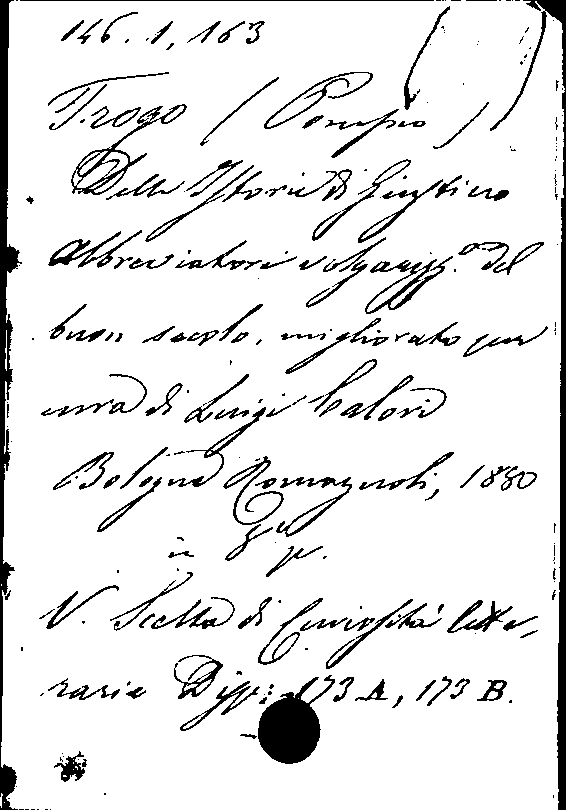 146. 1, 163
Trogo (Pompeo)
Delle Istorie di Giustino
Abbreviatore volgarizz.o del
buon secolo, migliorato per
cura di Luigi Calori
Bologna Romagnoli, 1880
in 8.° p.
V. Scelta di Curiosità lette-
rarie Disp: 173 A, 173 B.